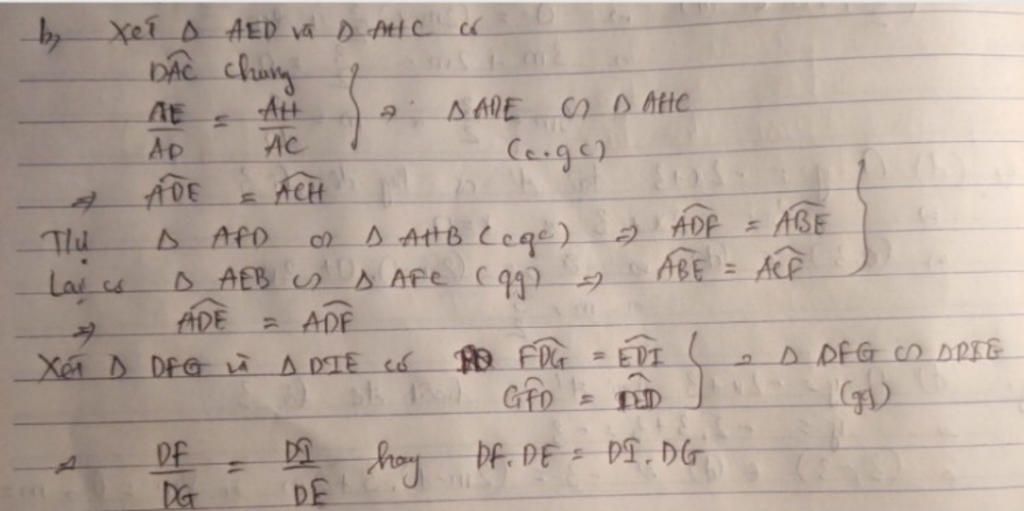 b, Xét Δ AED và Δ AHC có
DAC chung
AE/AD = AH/AC } => Δ ADE ∽ Δ AHC
(c.g.c)
=> ADE = ACH
T/tự Δ AFD ∽ Δ AHB (cgc) => ADF = ABE
Lại có Δ AEB ∽ Δ AFC (gg) => ABE = ACF
=> ADE = ADF
Xét Δ DFG và Δ DIE có FDG = EDI } => Δ DFG ∽ Δ DIE
GFD = (gg)
=> DF/DG = DI/DE hay DF.DE = DI.DG